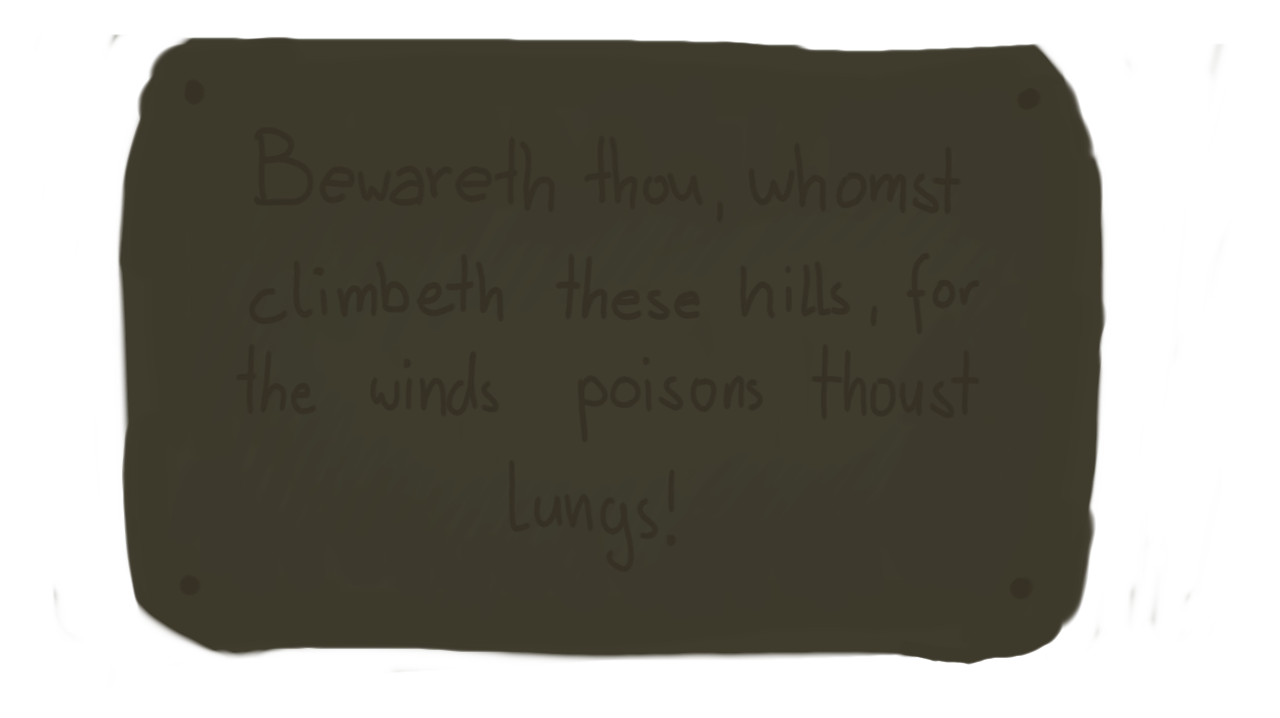 Bewareth thou, whomst
climbeth these hills, for
the winds poisons thoust
Lungs!